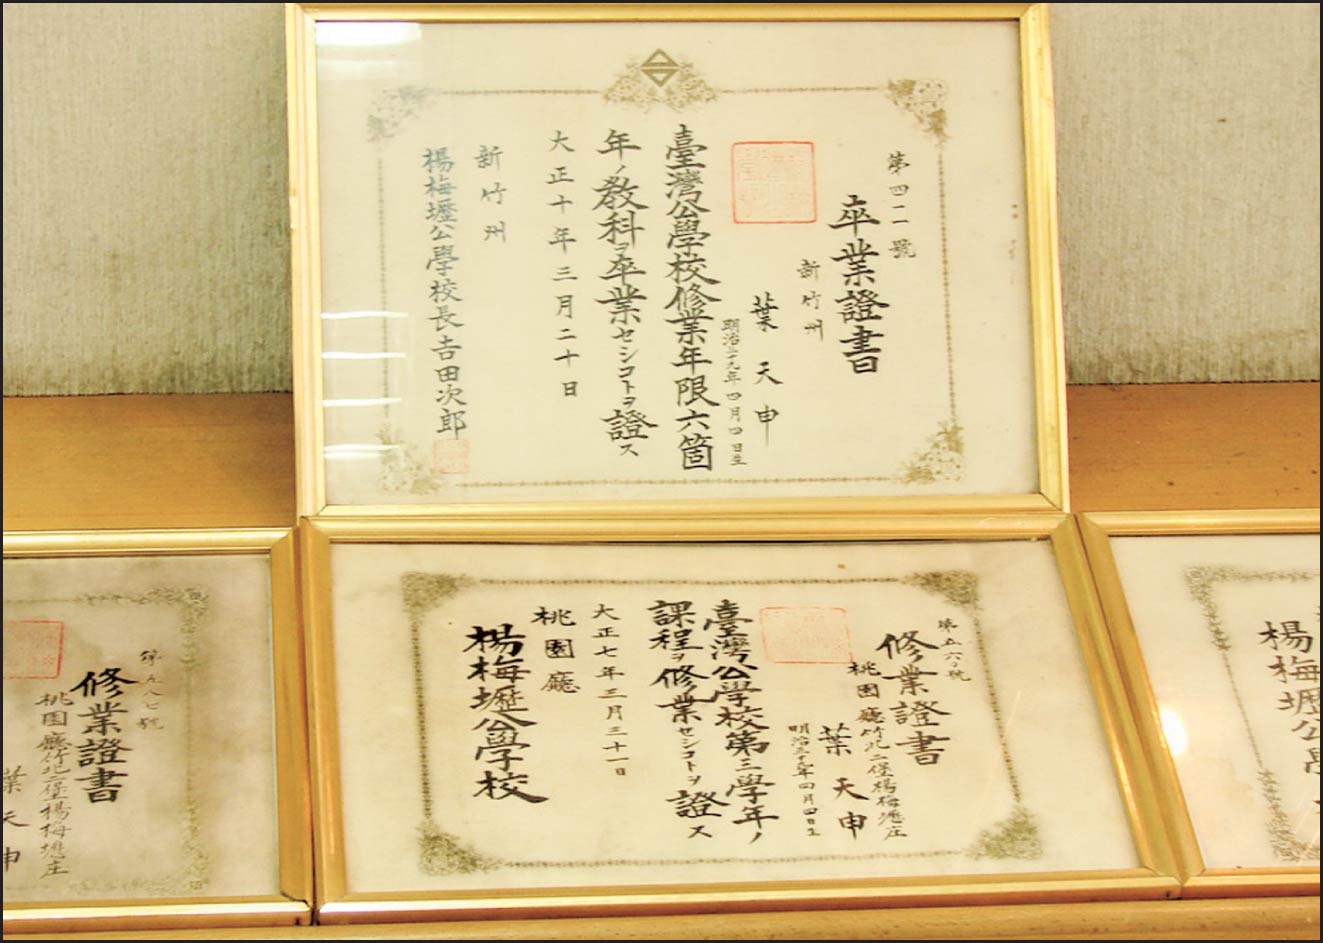 第四二一號
卒業證書
新竹州
葉天申
明治三十九年四月四日生
臺灣公學校修業年限六箇
年ノ教科ヲ卒業セシコトヲ證ス
大正十年三月二十日
新竹州
楊梅壢公學校長吉田次郎
修業證書
桃園廳竹北二堡楊梅壢庄
葉天申
明治三十九年四月四日生
臺灣公學校第三學年ノ
課程ヲ修業セシコトヲ證ス
大正七年三月三十一日
桃園廳
楊梅壢公學校
第五八七號
修業證書
桃園廳竹北二堡楊梅壢庄
葉天申
楊梅壢公學